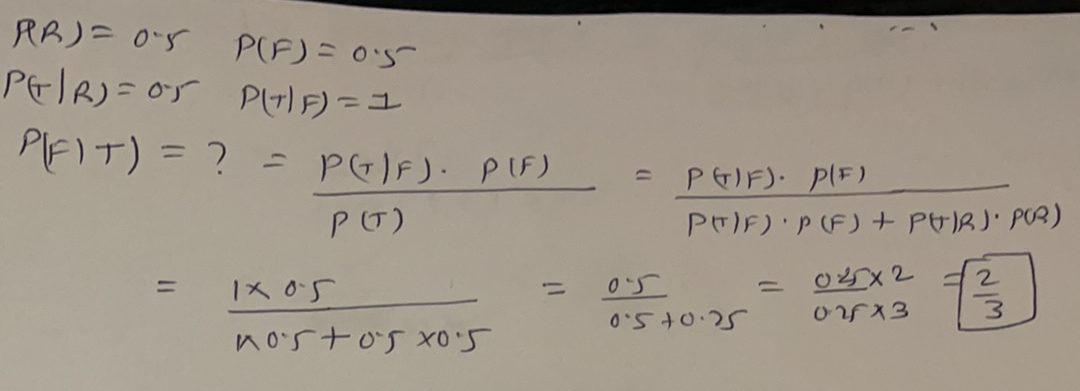 P(R) = 0.5 P(F) = 0.5
P(T|R) = 0.5 P(T|F) = 1
P(F|T) = ? = P(T|F). P(F) / P(T) = P(T|F). P(F) / P(T|F). P(F) + P(T|R). P(R)
= 1 x 0.5 / 1x0.5 + 0.5 x0.5 = 0.5 / 0.5 + 0.25 = 0.25 x 2 / 0.25 x 3 = 2/3